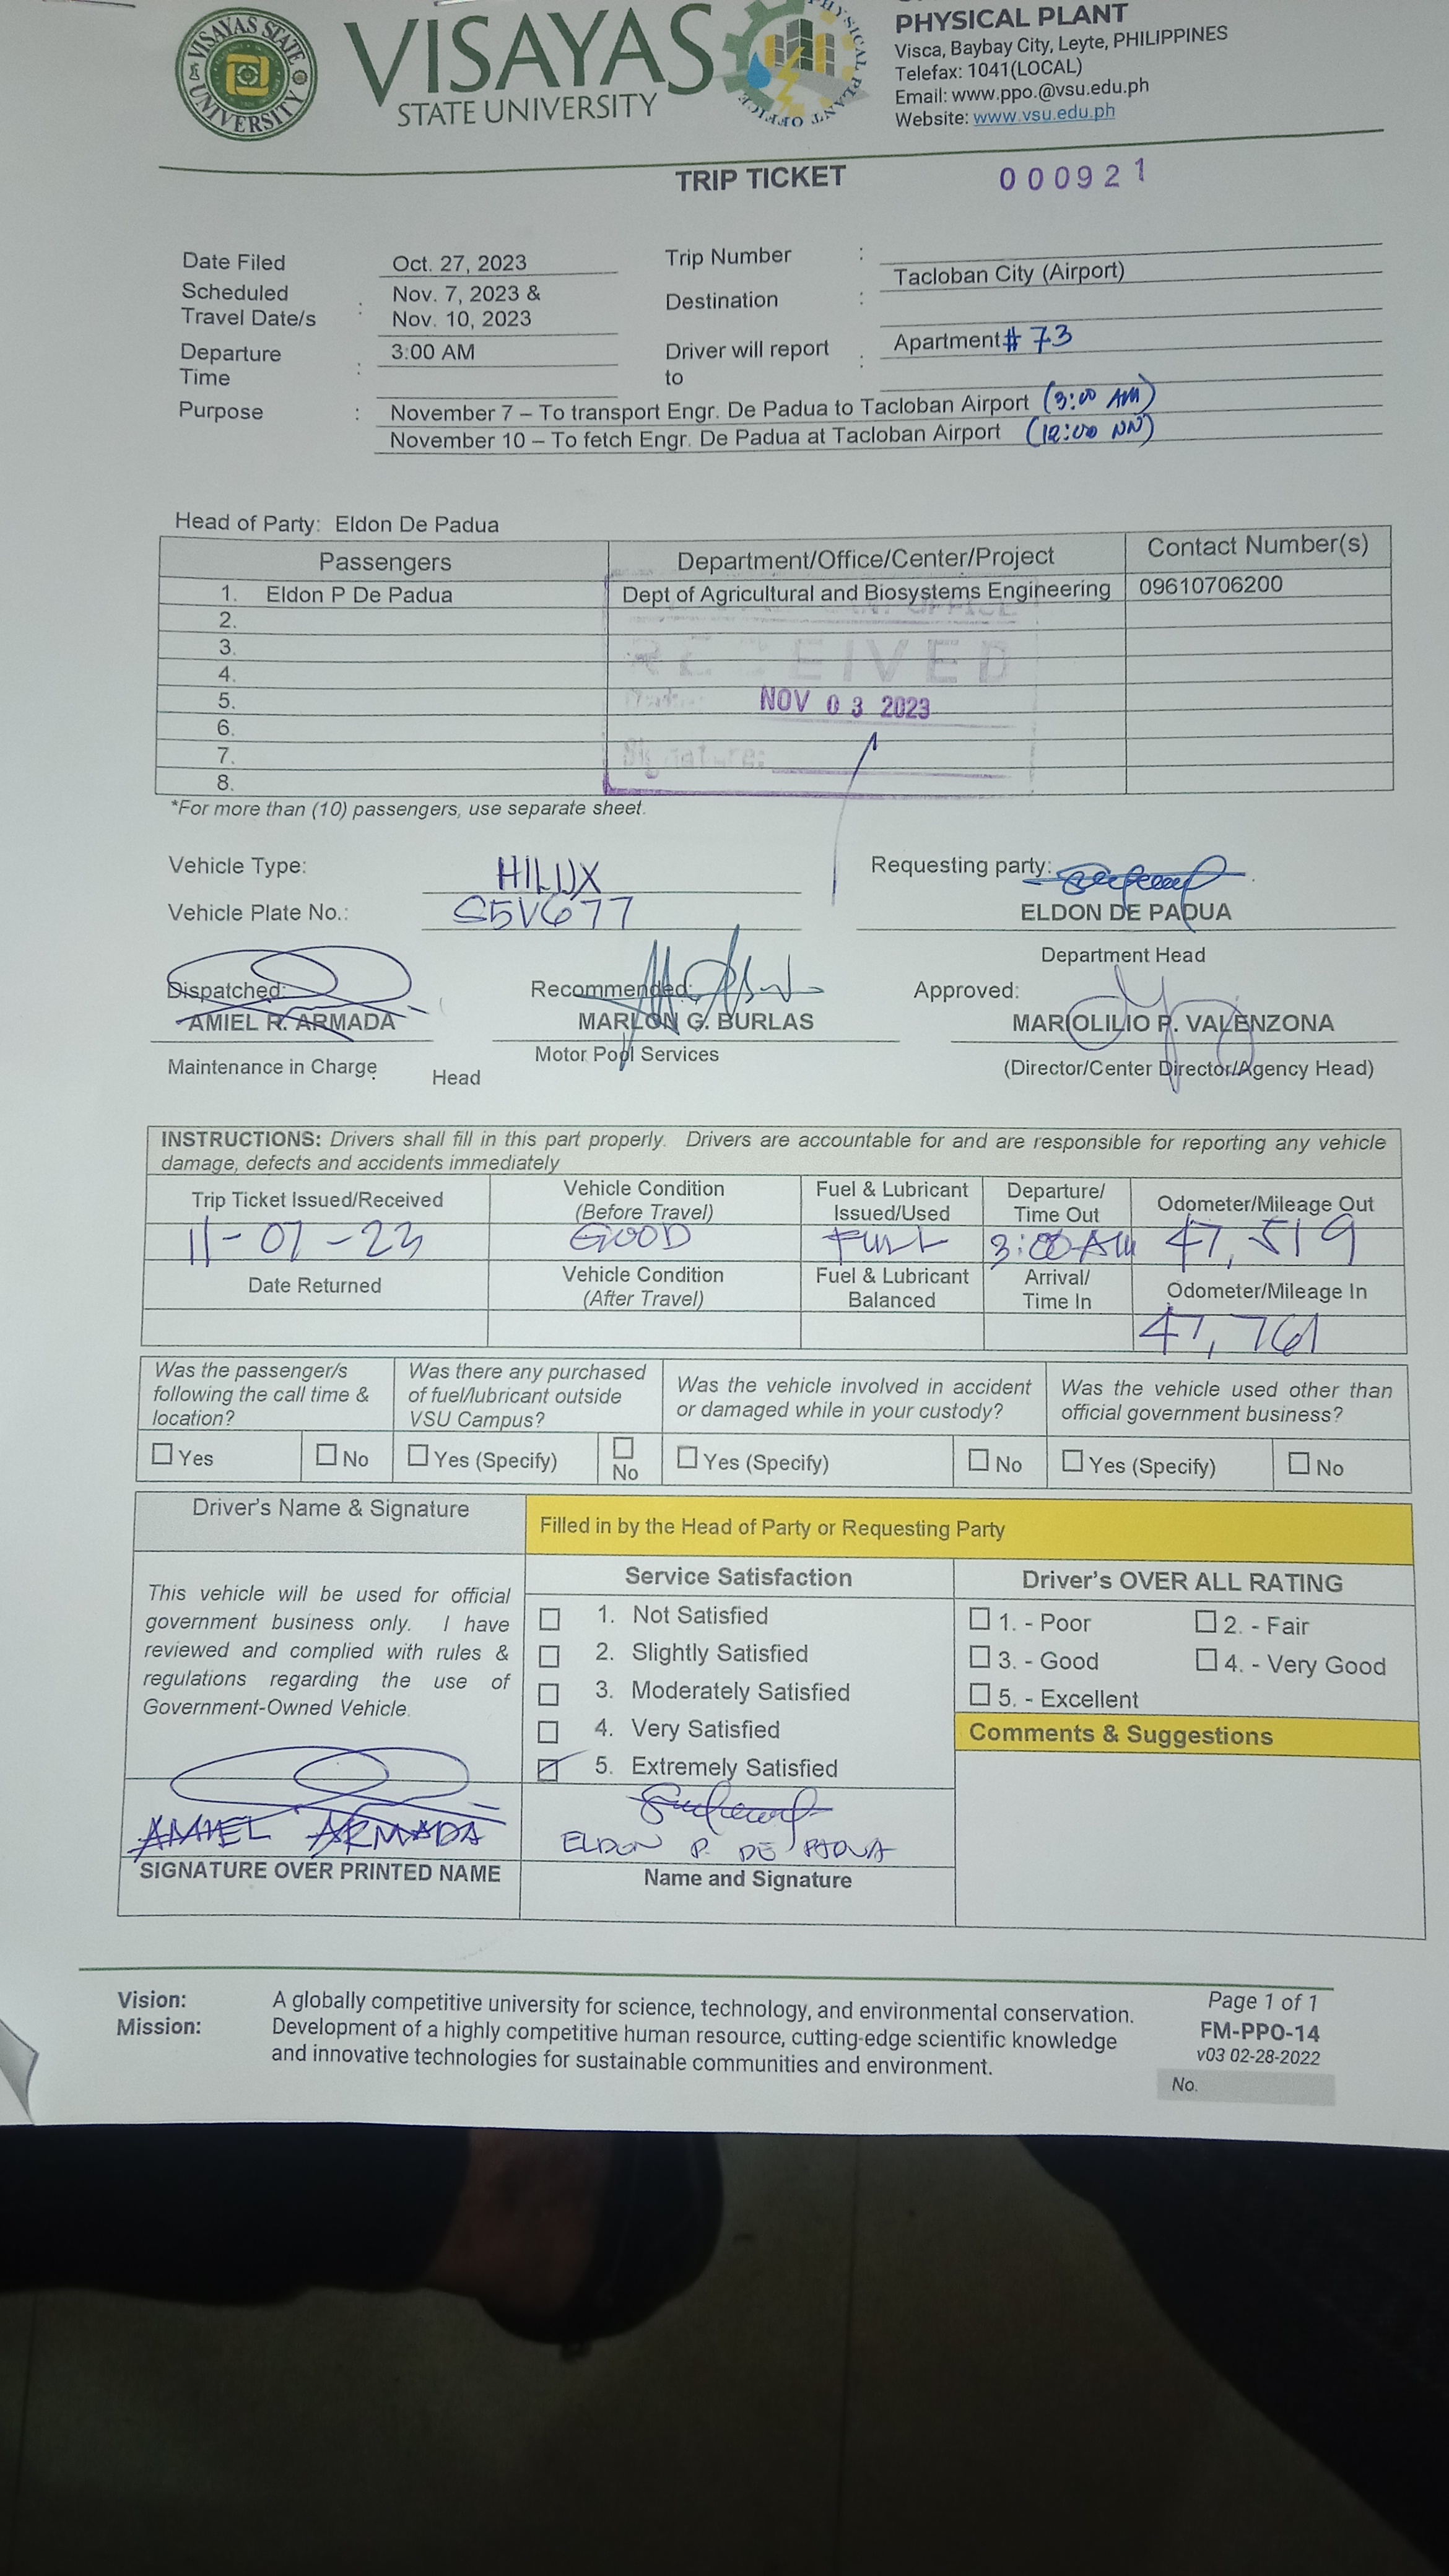 VISAYAS STATE UNIVERSITY
VISAYAS
STATE UNIVERSITY
PHYSICAL PLANT OFFICE
PHYSICAL PLANT
Visca, Baybay City, Leyte, PHILIPPINES
Telefax: 1041(LOCAL)
Email: www.ppo.@vsu.edu.ph
Website: www.vsu.edu.ph
TRIP TICKET 000921
Date Filed Oct. 27, 2023 Trip Number :
Scheduled Travel Date/s : Nov. 7, 2023 & Nov. 10, 2023 Destination : Tacloban City (Airport)
Departure Time : 3:00 AM Driver will report to : Apartment # 73
Purpose : November 7 – To transport Engr. De Padua to Tacloban Airport (3:00 AM)
November 10 – To fetch Engr. De Padua at Tacloban Airport (12:00 NN)
Head of Party: Eldon De Padua
Passengers Department/Office/Center/Project Contact Number(s)
1. Eldon P De Padua Dept of Agricultural and Biosystems Engineering 09610706200
2.
3.
4.
5.
6.
7.
8.
RECEIVED
NOV 03 2023
Signature:
*For more than (10) passengers, use separate sheet.
Vehicle Type: HILUX Requesting party:
Vehicle Plate No.: S5V677 ELDON DE PADUA
Department Head
Dispatched: Recommended: Approved:
AMIEL R. ARMADA MARLON G. BURLAS MARIOLILIO P. VALENZONA
Maintenance in Charge Head Motor Pool Services (Director/Center Director/Agency Head)
INSTRUCTIONS: Drivers shall fill in this part properly. Drivers are accountable for and are responsible for reporting any vehicle
damage, defects and accidents immediately
Trip Ticket Issued/Received Vehicle Condition (Before Travel) Fuel & Lubricant Issued/Used Departure/ Time Out Odometer/Mileage Out
11-07-23 GOOD FULL 3:00 AM 47,519
Date Returned Vehicle Condition (After Travel) Fuel & Lubricant Balanced Arrival/ Time In Odometer/Mileage In
47,761
Was the passenger/s following the call time & location? Was there any purchased of fuel/lubricant outside VSU Campus? Was the vehicle involved in accident or damaged while in your custody? Was the vehicle used other than official government business?
Yes No Yes (Specify) No Yes (Specify) No Yes (Specify) No
Driver's Name & Signature Filled in by the Head of Party or Requesting Party
This vehicle will be used for official
government business only. I have
reviewed and complied with rules &
regulations regarding the use of
Government-Owned Vehicle.
AMIEL ARMADA
SIGNATURE OVER PRINTED NAME
Service Satisfaction
1. Not Satisfied
2. Slightly Satisfied
3. Moderately Satisfied
4. Very Satisfied
5. Extremely Satisfied
ELDON P. DE PADUA
Name and Signature
Driver's OVER ALL RATING
1. - Poor 2. - Fair
3. - Good 4. - Very Good
5. - Excellent
Comments & Suggestions
Vision: A globally competitive university for science, technology, and environmental conservation.
Mission: Development of a highly competitive human resource, cutting-edge scientific knowledge
and innovative technologies for sustainable communities and environment.
Page 1 of 1
FM-PPO-14
v03 02-28-2022
No.